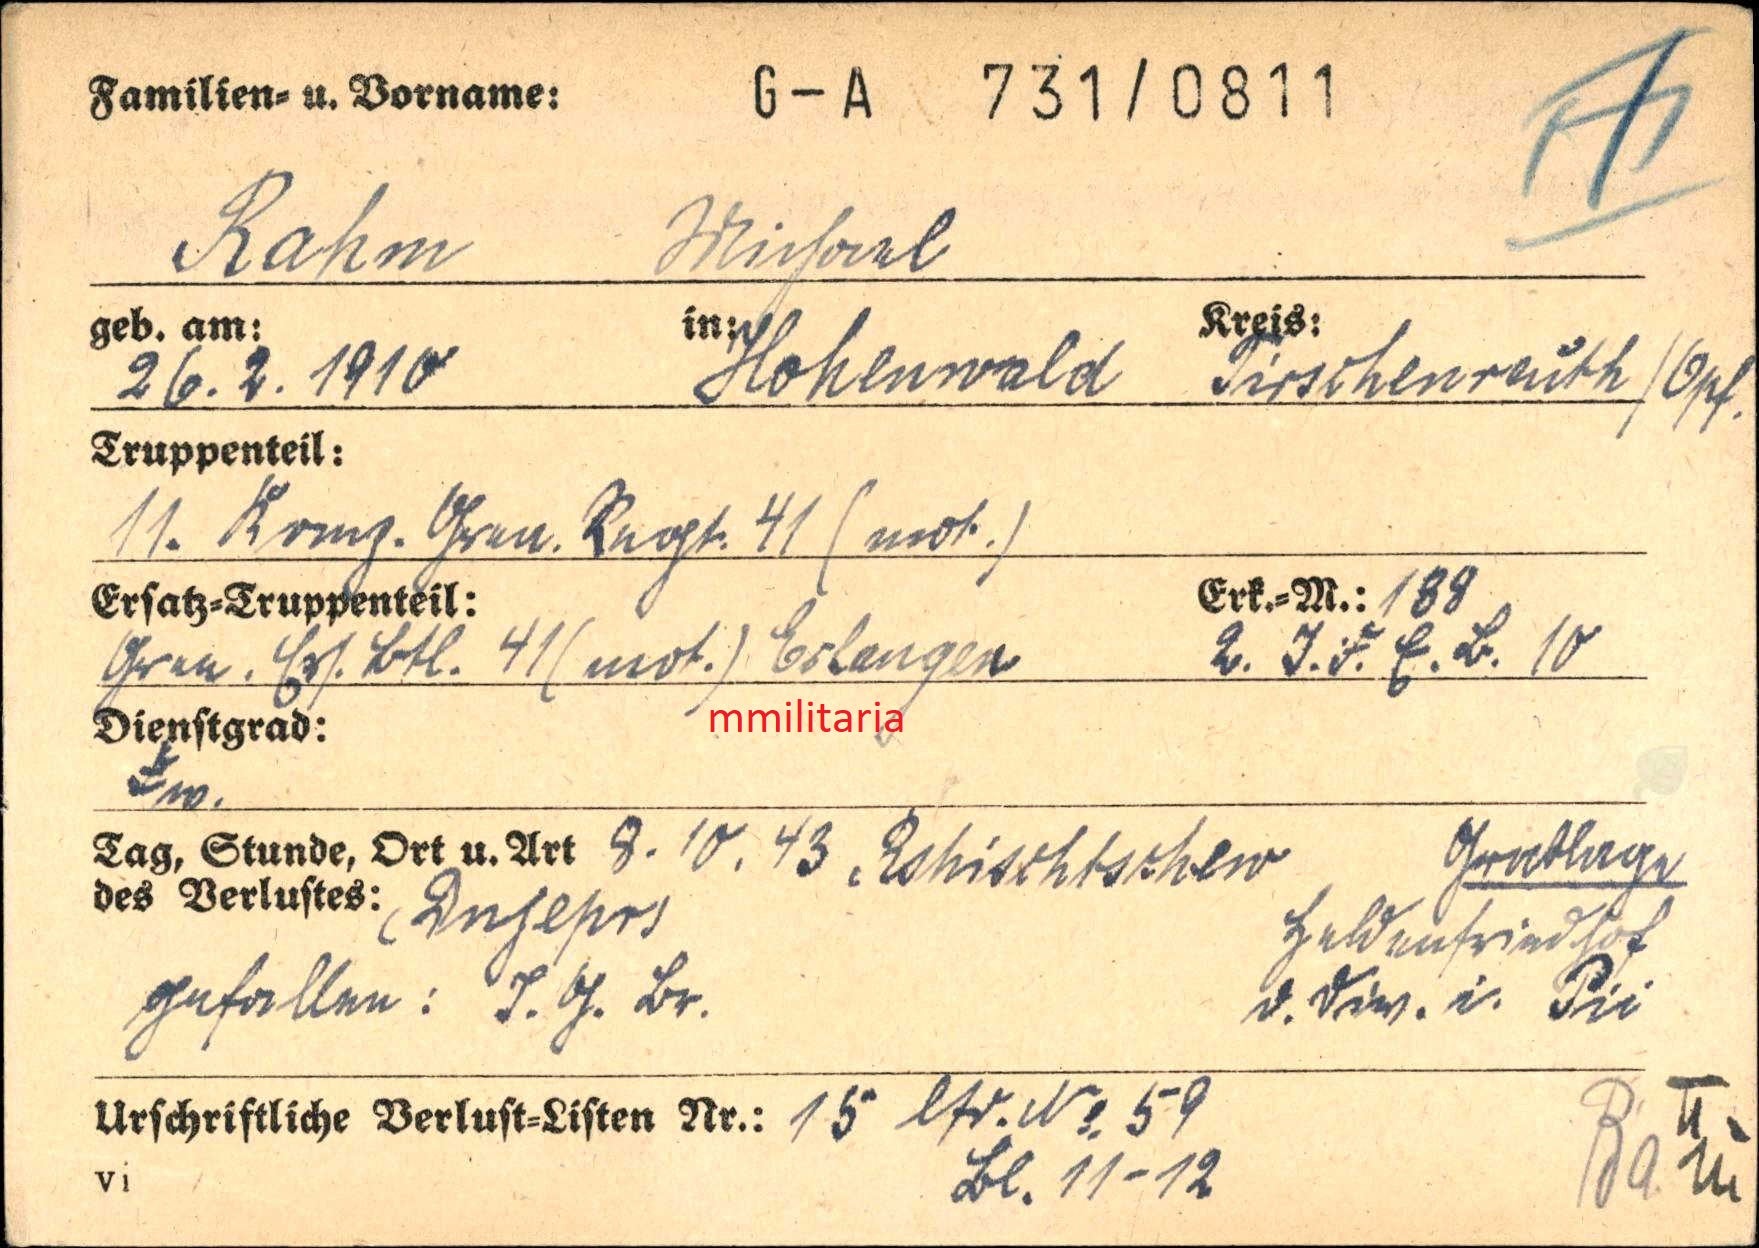 Familien- u. Vorname: G-A 731/0811
Rahm Michael
geb. am: in: Kreis:
26. 2. 1910 Hohenwald Tirschenreuth/Opf.
Truppenteil:
11. Komp. Gren. Regt. 41 (mot.)
Ersatz-Truppenteil: Erk.-M.: 188
Gren. Ers. Btl. 41 (mot.) Erlangen 2. I. E. B. 10
mmilitaria
Dienstgrad:
Tag, Stunde, Ort u. Art 8. 10. 43 Grablage
des Verlustes: (Dnjepr)
Heldenfriedhof
gefallen: I. G. Br. d. Div. i. Pii
Urschriftliche Verlust-Listen Nr.: 15 lfd. No. 59
vi Bl. 11-12